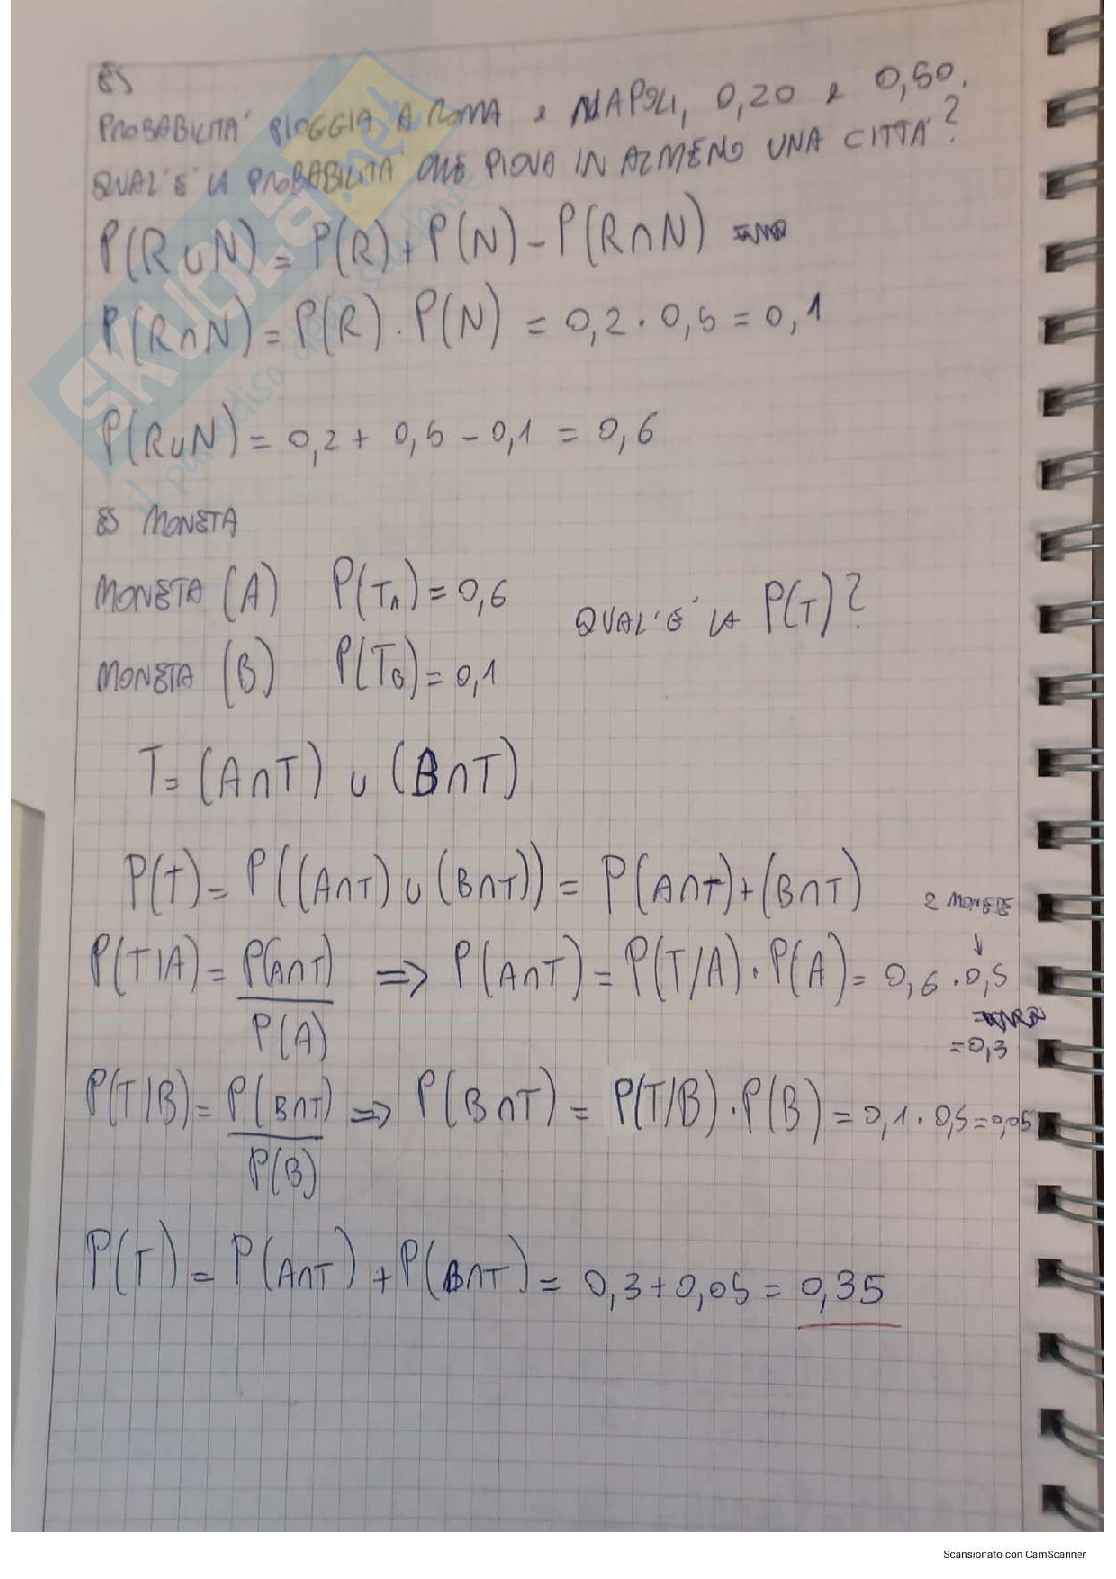 ES
PROBABILITA' PIOGGIA A ROMA E NAPOLI, 0,20 E 0,50.
QUAL'E' LA PROBABILITA' CHE PIOVA IN ALMENO UNA CITTA'?
P(R∪N) = P(R) + P(N) - P(R∩N)
P(R∩N) = P(R) · P(N) = 0,2 · 0,5 = 0,1
P(R∪N) = 0,2 + 0,5 - 0,1 = 0,6
ES MONETA
MONETA (A) P(T_A) = 0,6
QUAL'E' LA P(T)?
MONETA (B) P(T_B) = 0,1
T = (A∩T) ∪ (B∩T)
P(T) = P((A∩T) ∪ (B∩T)) = P(A∩T) + (B∩T)
2 MONETE
↓
P(T|A) = P(A∩T) / P(A) => P(A∩T) = P(T/A) · P(A) = 0,6 · 0,5
= 0,3
P(T/B) = P(B∩T) / P(B) => P(B∩T) = P(T/B) · P(B) = 0,1 · 0,5 = 0,05
P(T) = P(A∩T) + P(B∩T) = 0,3 + 0,05 = 0,35
SKUOLA.net
Scansionato con CamScanner